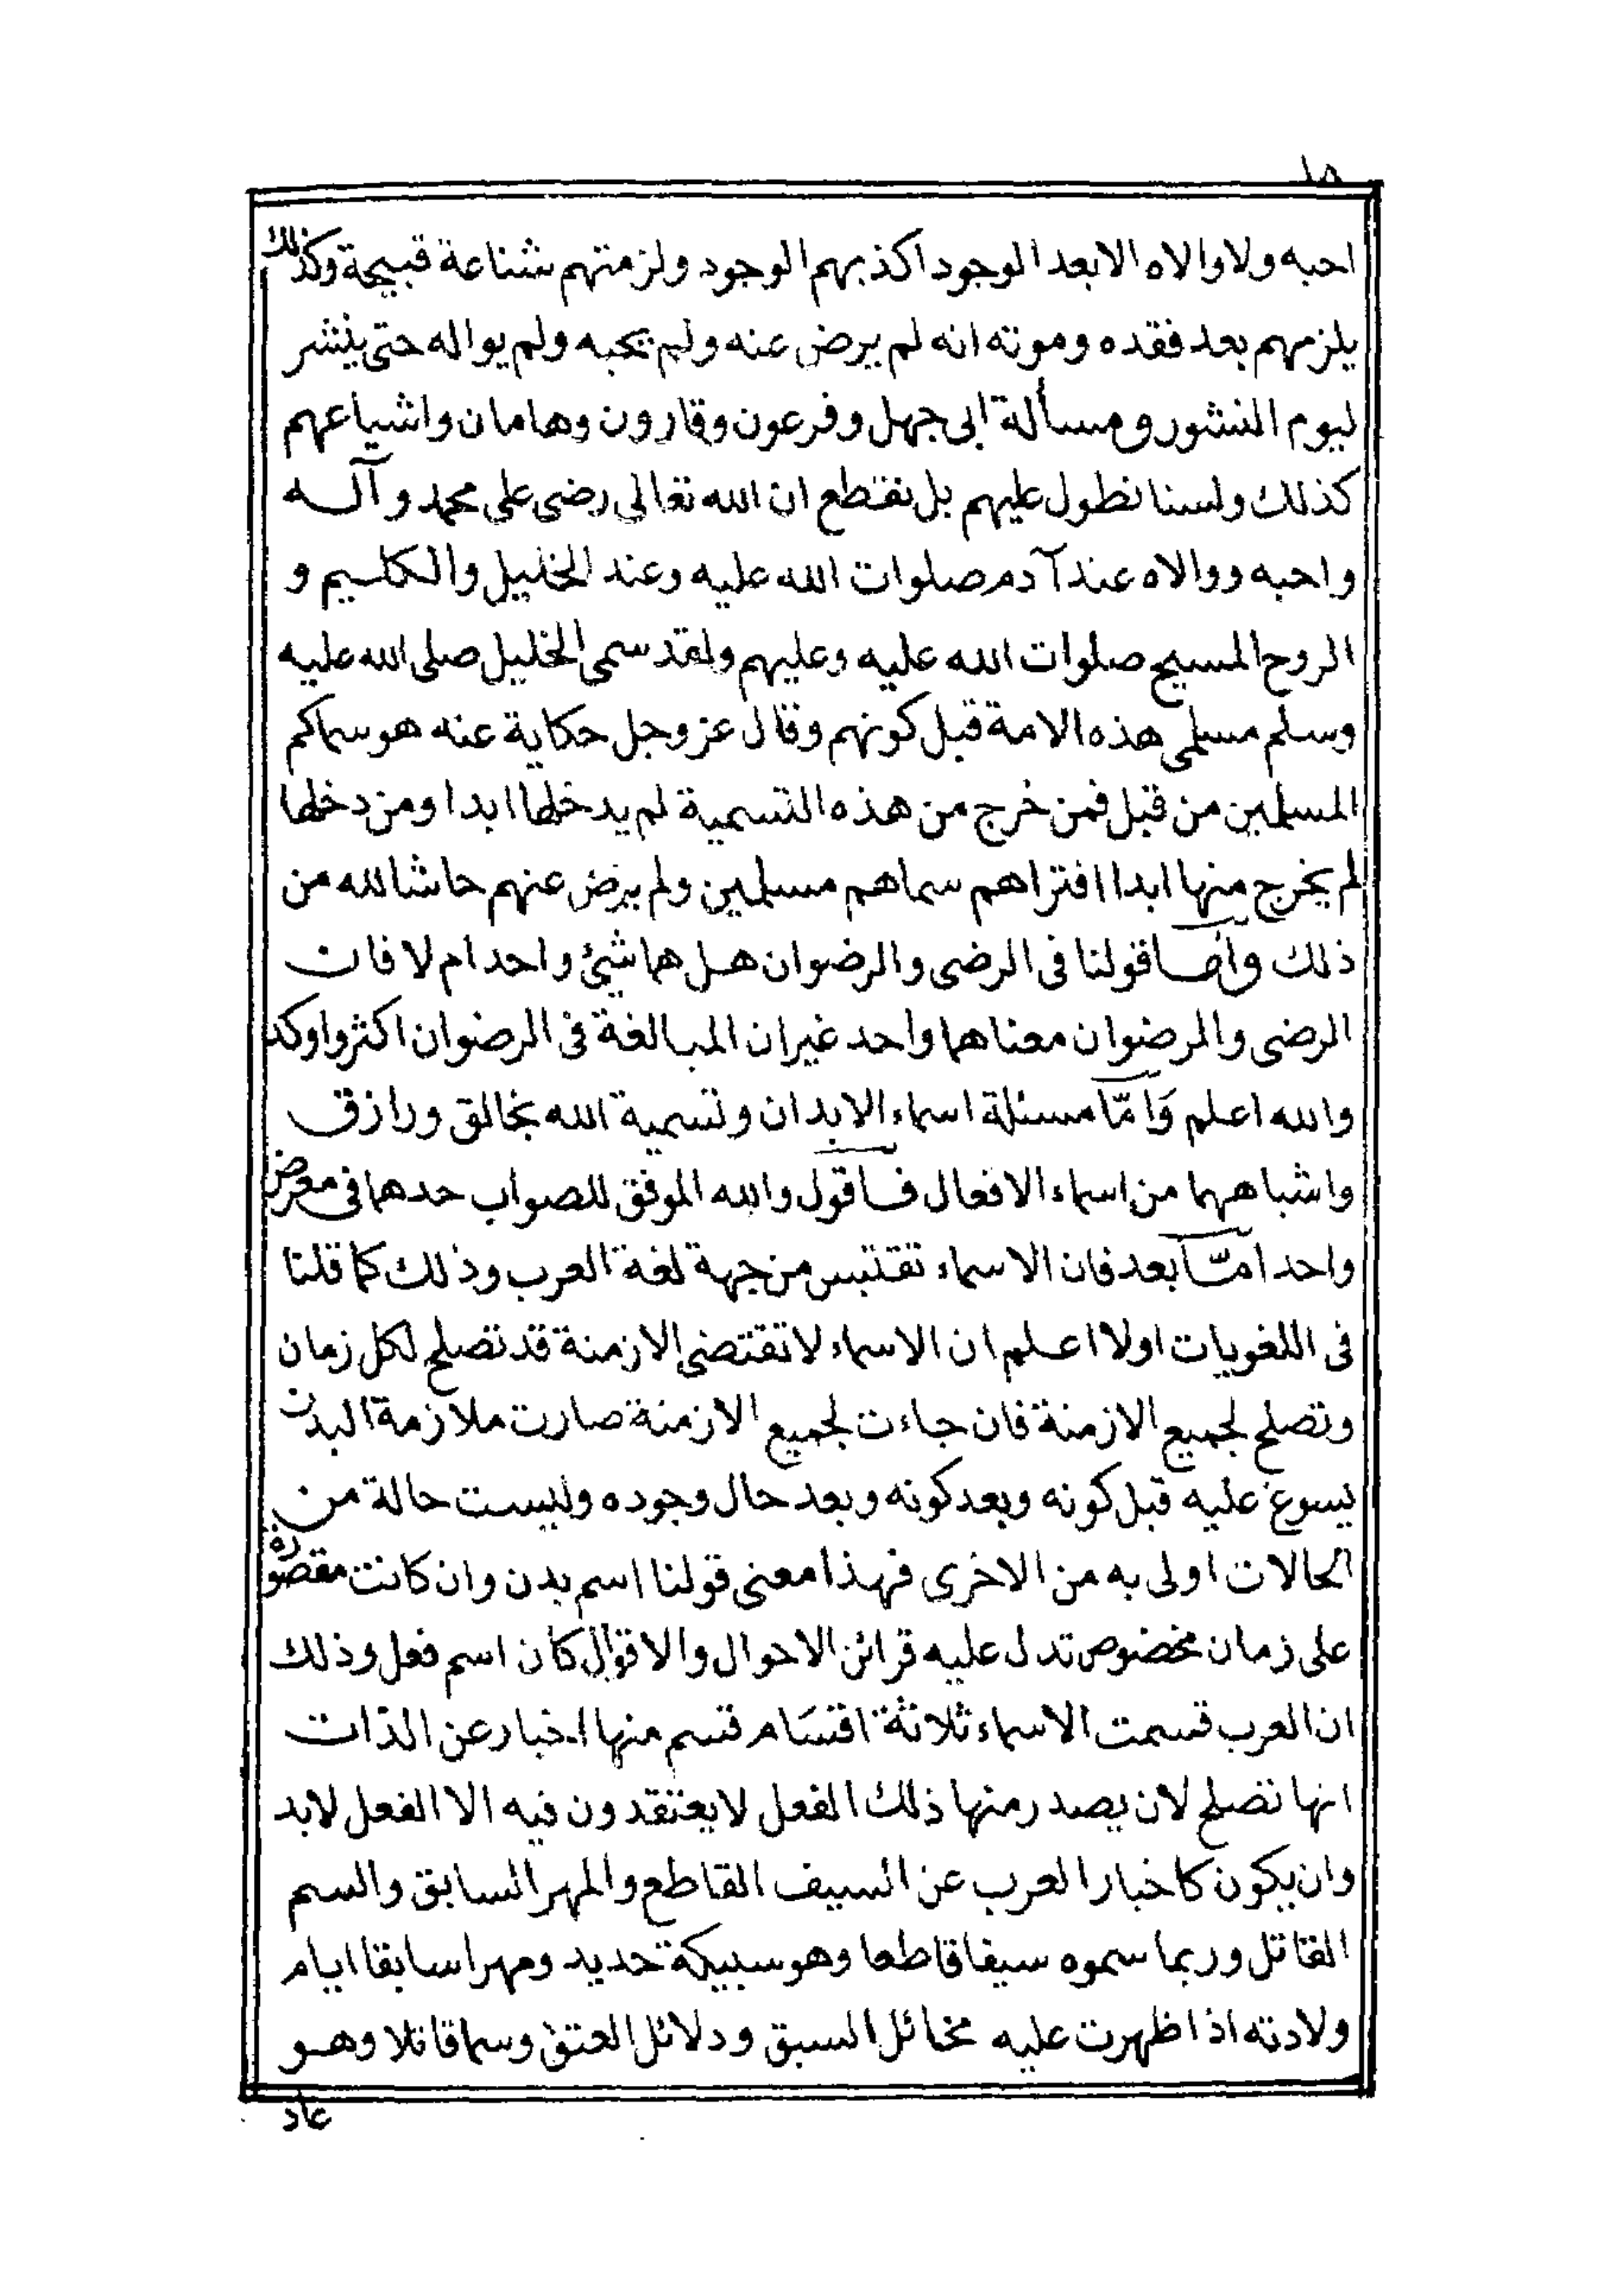 ١٥
احبه ولا والاه الا بعد الوجود اكذبهم الوجود ولزمتهم شناعة قبيحة وكذلك
يلزمهم بعد فقده وموته انه لم يرض عنه ولم يحبه ولم يواله حتى ينشر
ليوم النشور ومسألة ابى جهل وفرعون وقارون وهامان واشياعهم
كذلك ولسنا نطول عليهم بل نقطع ان الله تعالى رضى على محمد وآله
واحبه ووالاه عند آدم صلوات الله عليه وعند الخليل والكليم و
الروح المسيح صلوات الله عليه وعليهم ولقد سمى الخليل صلى الله عليه
وسلم مسلمى هذه الامة قبل كونهم وقال عز وجل حكاية عنه هو سماكم
المسلمين من قبل فمن خرج من هذه التسمية لم يدخلها ابدا ومن دخلها
لم يخرج منها ابدا افتراهم سماهم مسلمين ولم يرض عنهم حاشا لله من
ذلك وأما قولنا فى الرضى والرضوان هل هما شئ واحد ام لا فان
الرضى والرضوان معناهما واحد غير ان المبالغة فى الرضوان اكثر واوكد
والله اعلم وَامّا مسئلة اسماء الابدان وتسمية الله بخالق ورازق
واشباههما من اسماء الافعال فاقول والله الموفق للصواب حدهما فى معرض
واحد امّا بعد فان الاسماء تقتبس من جهة لغة العرب وذلك كما قلنا
فى اللغويات اولا اعلم ان الاسماء لا تقتضى الازمنة قد تصلح لكل زمان
وتصلح لجميع الازمنة فان جاءت لجميع الازمنة صارت ملازمة البدن
يسوغ عليه قبل كونه وبعد كونه وبعد حال وجوده وليست حالة من
الحالات اولى به من الاخرى فهذا معنى قولنا اسم بدن وان كانت مقصورة
على زمان مخصوص تدل عليه قرائن الاحوال والاقوال كان اسم فعل وذلك
ان العرب قسمت الاسماء ثلاثة اقسَام قسم منها اخبار عن الذات
انها تصلح لان يصدر منها ذلك الفعل لا يعتقدون فيه الا الفعل لابد
وان يكون كاخبار العرب عن السيف القاطع والمهر السابق والسم
القاتل وربما سموه سيفا قاطعا وهو سبيكة حديد ومهرا سابقا ايام
ولادته اذا ظهرت عليه مخائل السبق ودلائل العتق وسما قاتلا وهو
عاد